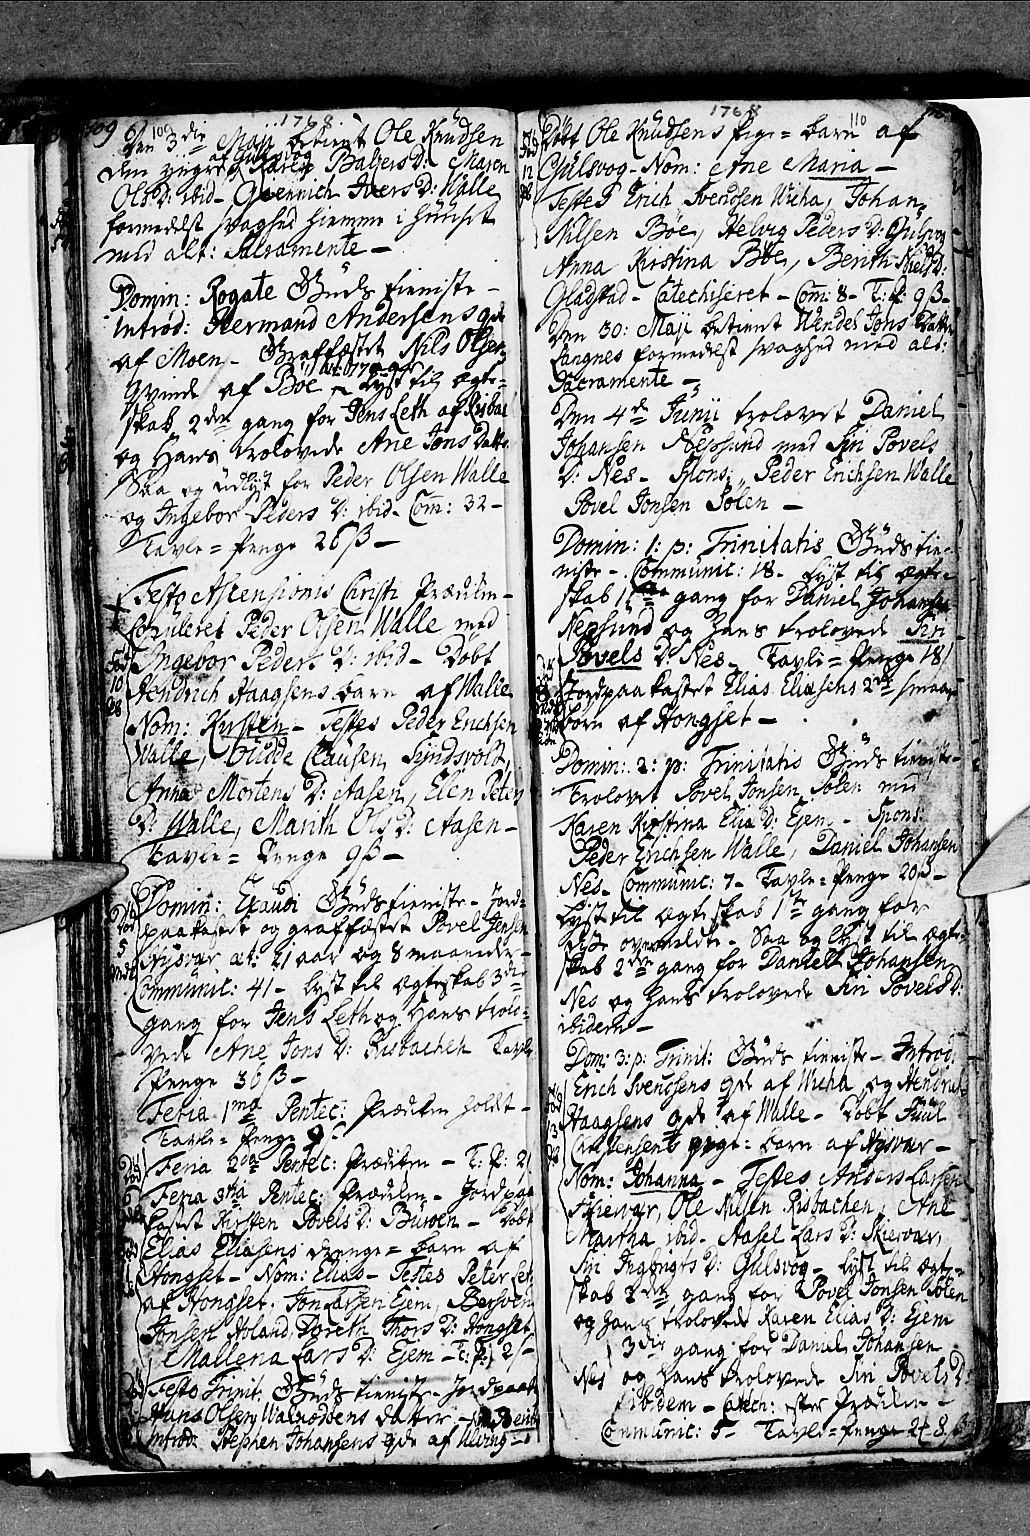 109 1768
Den 3die Maji betient Ole Knudsen
af Gulsvog
den yngre, Karen Balzers D: Maren
Ols D: ibid - Ivers D: Walle
formedelst svaghed hiemme i Huuset
med alt: Sacramente -
Domin: Rogate Guds tieniste -
Introd: Hermand Andersens qde
af Moen - Graffæstet Nils Olsens
qvinde af Böe - lyst til ægte-
skab 2den gang for Jens Leth af Risbac
og Hans trolovede Ane Jons Datter
Saa og udlyst for Peder Olsen Walle
og Ingebor Peders D: ibid - Com: 32 -
Tavle-Penge 26 ß -
Festo Ascensionis Christi Prædiken -
Copuleret Peder Olsen Walle med
Ingebor Peders D: ibid - Döbt
Hendrich Haagsens barn af Walle
Nom: Kirsten - Testes Peder Erichsen
Walle, Gudde Clausen Syndsvold,
Anna Mortens D: Aasen, Elen Peter
D: Walle, Marith Ols D: Aasen -
Tavle-Penge 9 ß -
Domin: Exaudi Guds tieniste - Jord-
paakastet og graffæstet Povel Jensen
æt: 21 aar og 8 maaneder -
Communic: 41 - lyst til ægteskab 3die
gang for Jens Leth og Hans trolo-
vede Ane Jons D: Risbachen Tavle
Penge 36 ß -
Feria 1ma Pentec: Prædiken holdt -
Tavle-Penge
Feria 2da Pentec: Prædiken - T: P: 2
Feria 3tia Pentec: Prædiken - Jordpaa
kastet Kirsten Povels D: Buroen - Döbt
Elias Eliasens drenge-barn af
Hongset - Nom: Elias - Testes Peter
af Hongset, Jon Larsen Ejem, Bersven
Jonsen Holand, Doreth Thors D: Hongset
Mallena Lars D: Ejem - T: P: 2 ß -
Festo Trinit: Guds tieniste - Jordpaak
Hans Olsen datter -
Introd: Stephen Johansens qde af Ulving -
1768 110
Döbt Ole Knudsens pige-barn af
Gulsvog - Nom: Ane Maria -
Testes Erich Svendsen Wicha, Johan
Nilsen Böe, Helvig Peders D: Gulsvog
Anna Kirstina Böe, Berith Niels D:
Gladstad - Catechiseret - Com: 8 - T: P: 9 ß -
Den 30: Maji betient Wendel Jons Datter
Langnes formedelst svaghed med alt:
Sacramente -
Den 4de Junii trolovet Daniel
Johansen Nepsund med Siri Povels
D: Nes - Spons: Peder Erichsen Walle
Povel Jonsen Sölen -
Domin: 1: p: Trinitatis Guds tie-
niste - Communic: 18 - lyst til ægte-
skab 1ste gang for Daniel Johansen
Nepsund og hans trolovede Siri
Povels D: Nes - Tavle-Penge 18 ß
Jordpaakastet Elias Eliasens 2de smaa
börn af Hongset -
Domin: 2: p: Trinitatis Guds tieniste -
Trolovet Povel Jonsen Sölen med
Karen Kirstina Elia D: Ejem - Spons:
Peder Erichsen Walle, Daniel Johansen
Nes - Communic: 7 - Tavle-Penge 20 ß -
Lyst til ægteskab 1ste gang for
disse ovenmeldte - Saa og lyst til ægte-
skab 2den gang for Daniel Johansen
Nes og hans trolovede Siri Povels D:
ibidem -
Dom: 3: p: Trinit: Guds tieniste - Introd:
Erich Svendsens qde af Wicha og Hendrich
Haagsens qde af Walle - Döbt Juul
Christensens pige-barn af -
Nom: Johanna - Testes Anders Larsen
Skiervær, Ole Nilsen Risbachen, Ane
Martha ibid - Aasel Lars D: Skiervær,
Siri Ingbrigts D: Gulsvog - lyst til ægte-
skab 2den gang for Povel Jonsen Sölen
og hans trolovede Karen Elias D: Ejem
3die gang for Daniel Johansen
Nes og hans trolovede Siri Povels D:
ibidem - Catech: efter Prædiken -
Communic: 5 - Tavle-Penge 24 ß